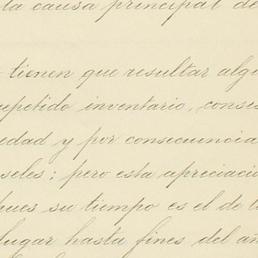 la causa principal de
tienen que resultar algu
repetido inventario, conse
edad y por consecuencia
seles; pero esta apreciació
pues su tiempo es el de t
lugar hasta fines del añ